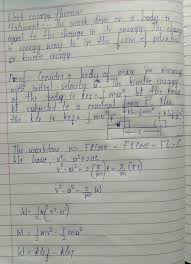 Work energy theorem
Statement: The work done on a body is
equal to the change in its energy. The change
in energy may be in the form of potential
or kinetic energy.
Proof - Consider a body of mass m moving
with initial velocity u. The kinetic energy
of the body is kei = ½mu². Let the body
be subjected to a constant force F. Thus
the ke is kef = ½mv²
The workdone W = FLcosθ = FLcos0 = FL
We have, v² = u² + 2as
v² - u² = 2(F/m)L = 2/m (FL)
v² - u² = 2/m W
W = ½m(v² - u²)
W = ½mv² - ½mu²
W = kef - kei